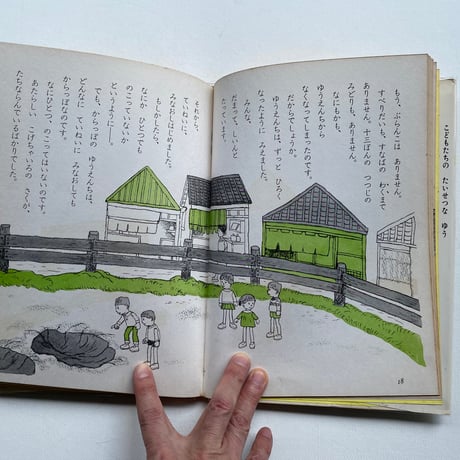 こどもたちの たいせつな ゆう
もう、ぶらんこは ありません。
すべりだいも、すなばの わくまで
ありません。十三ぼんの つつじの
みどりも、ありません。
なにもかも、
ゆうえんちから
なくなってしまったのです。
だからでしょうか、
ゆうえんちは、ずっと ひろく
なったように みえました。
みんな、
だまって、しいんと
しています。
それから、
ていねいに、
みなおしはじめました。
もしかしたら、
なにか ひとつでも
のこっていないか
というように——。
でも、からっぽの ゆうえんちは、
どんなに ていねいに みなおしても
からっぽなのです。
なにひとつ、のこってはいないのです。
あたらしい こげちゃいろの さくが、
たちならんでいるばかりでした。
18